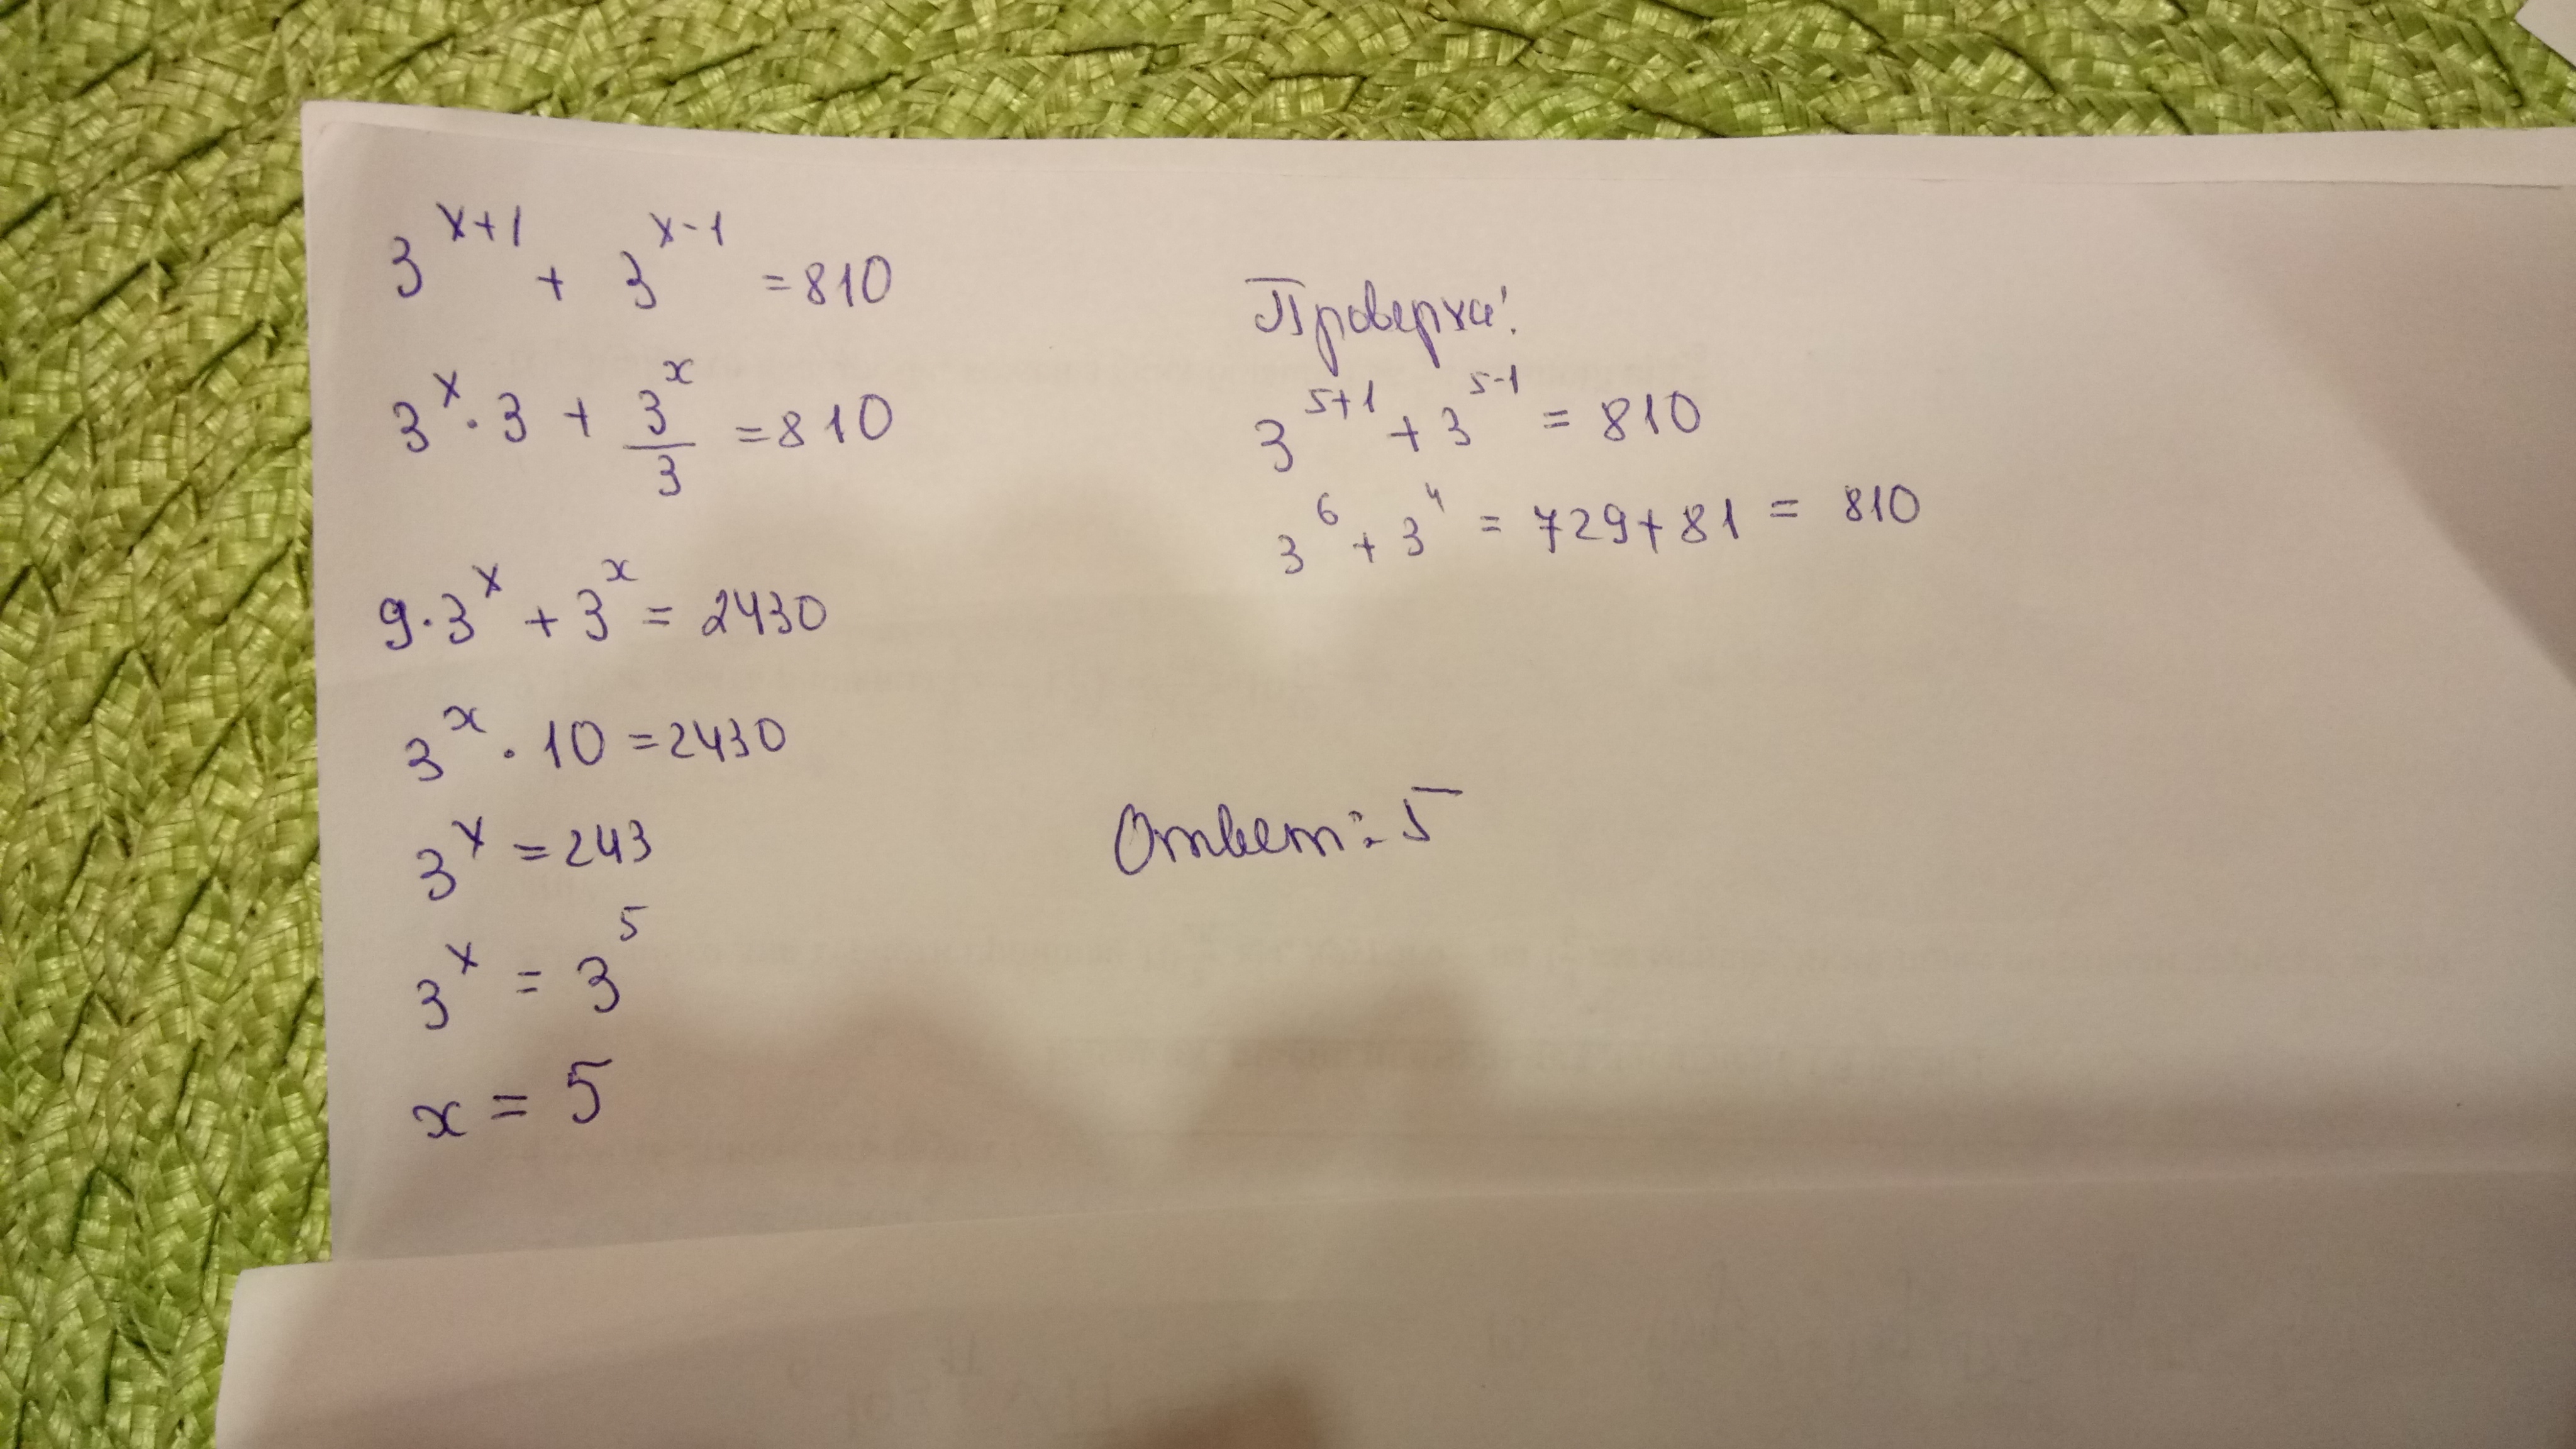 3^{x+1} + 3^{x-1} = 810
3^x · 3 + \frac{3^x}{3} = 810
9 · 3^x + 3^x = 2430
3^x · 10 = 2430
3^x = 243
3^x = 3^5
x = 5
Проверка:
3^{5+1} + 3^{5-1} = 810
3^6 + 3^4 = 729 + 81 = 810
Ответ: 5